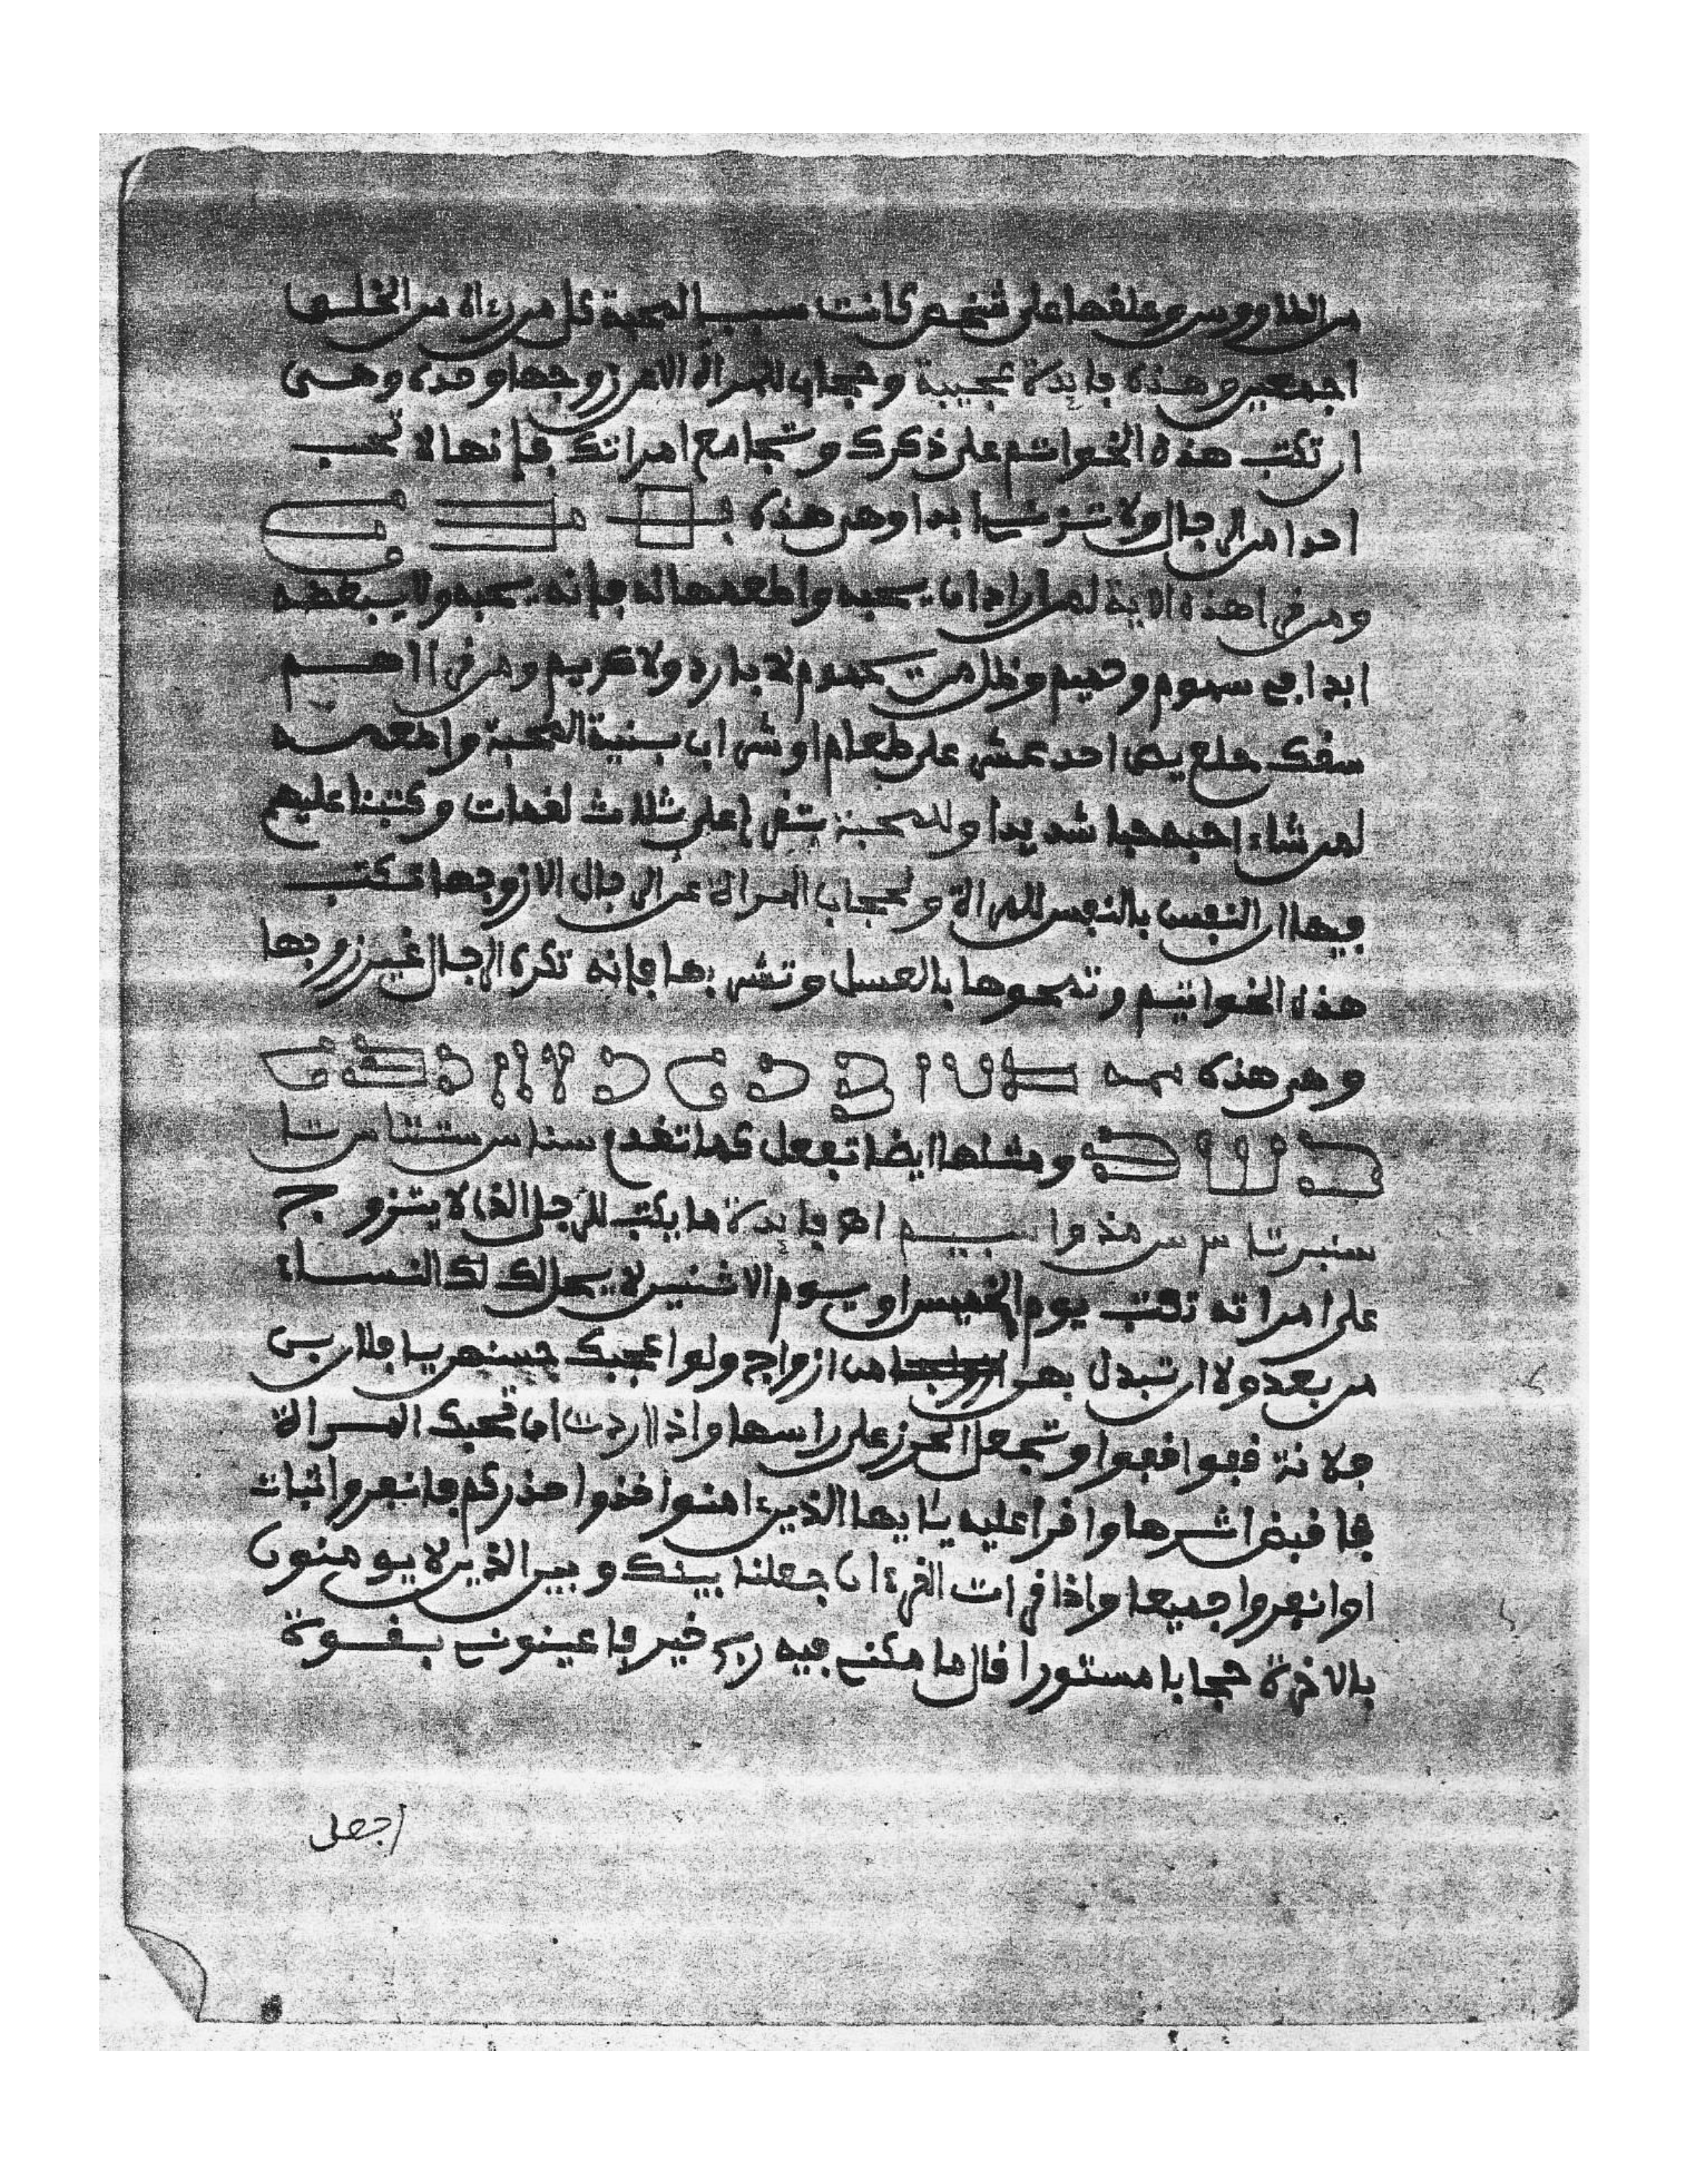 من الطاووس وعلقها على شخص كانت سبب المحبة كل من رءاه من الخلق
اجمعين وهذه فايدة عجيبة وحجاب للمراة الا من زوجها وحده وهي
ان تكتب هذه الخواتم على ذكرك وتجامع امراتك فإنها لا تحب
احدا من الرجال ولا تزني ابدا وهي هذه
ومن قرا هذه الاية لمن اراد ان يحبه واطعمها له فإنه يحبه ولا يبغضه
ابدا في سموم وحميم وظل من يحموم لا بارد ولا كريم ومن قرا
سقك احد عشر على طعام او شراب بنية المحبة واطعمه
لمن شاء احبه حبا شديدا وللمحبة تقرا على ثلاث لقمات وكتبنا عليهم
فيها ان النفس بالنفس للمراة ولحجاب المراة عن الرجال الا زوجها تكتب
هذه الخواتيم وتمحوها بالعسل وتشربها فإنه تكره الرجال غير زوجها
وهي هذه
ومثلها ايضا تفعل كما تقدم
فايدة ما يكتب للرجل الذي لا يتزوج
على امراته تكتب يوم الخميس او يوم الاثنين لا يحل لك النساء
من بعد ولا ان تبدل بهن من ازواج ولو اعجبك حسنهن يا فلان بن
فلانة قفوا قفوا وتجعل الحرز على راسها واذا اردت ان تحبك المراة
فاقبض اثرها واقرا عليه يأيها الذين ءامنوا خذوا حذركم فانفروا ثبات
او انفروا جميعا واذا قرات القرءان جعلنا بينك وبين الذين لا يومنون
بالاخرة حجابا مستورا قال ما مكني فيه ربي خير فاعينوني بقوة
اجعل